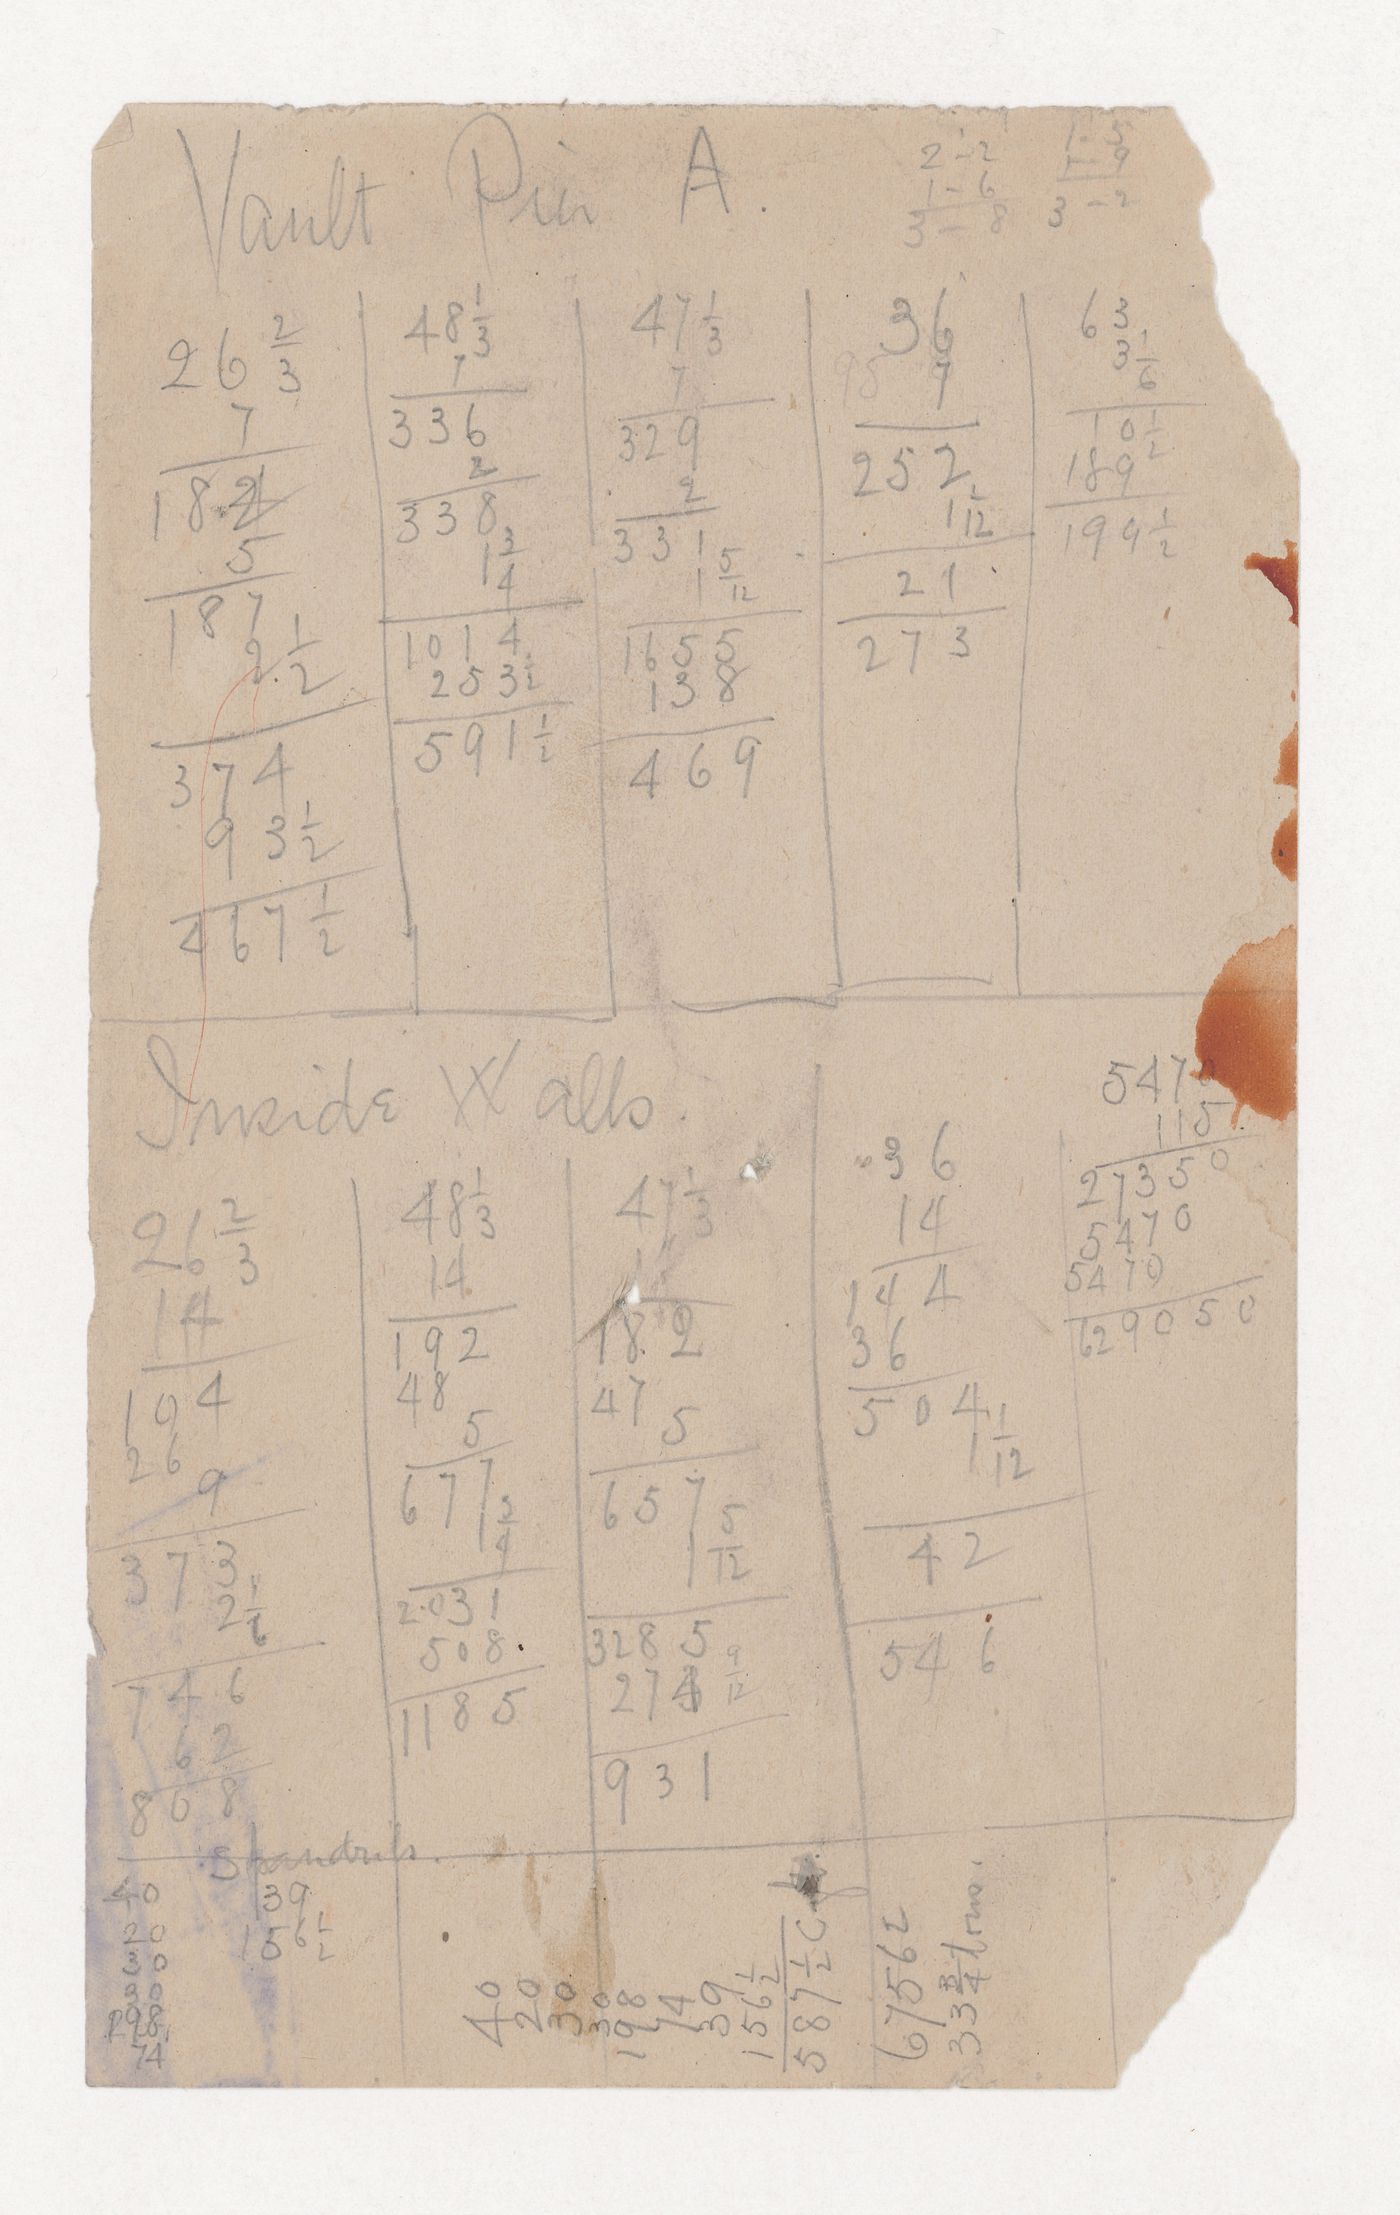 Vault Pier A.
2 - 2
1 - 6
3 - 8
1 - 5
1 - 9
3 - 2
26 2/3
7
182
5
187
2 1/2
374
93 1/2
467 1/2
48 1/3
7
336
2
338
1 3/4
1014
253 1/2
591 1/2
47 1/3
7
329
2
331
1 5/12
1655
138
469
36
7
252
1 1/12
21
273
63
3 1/6
10 1/2
189
199 1/2
Inside Walls.
26 2/3
14
104
26
9
373
2 1/6
746
62
808
48 1/3
14
192
48
5
677
1 3/4
2031
508
1185
47 1/3
182
47
5
657
1 5/12
3285
274 9/12
931
36
14
144
36
504
1 1/12
42
546
547
115
27350
5470
5470
629050
Spandrils.
40
20
30
30
198
74
39
156 1/2
40
20
30
30
198
74
39
156 1/2
587 1/2 C
67562
33 3/4 tons.